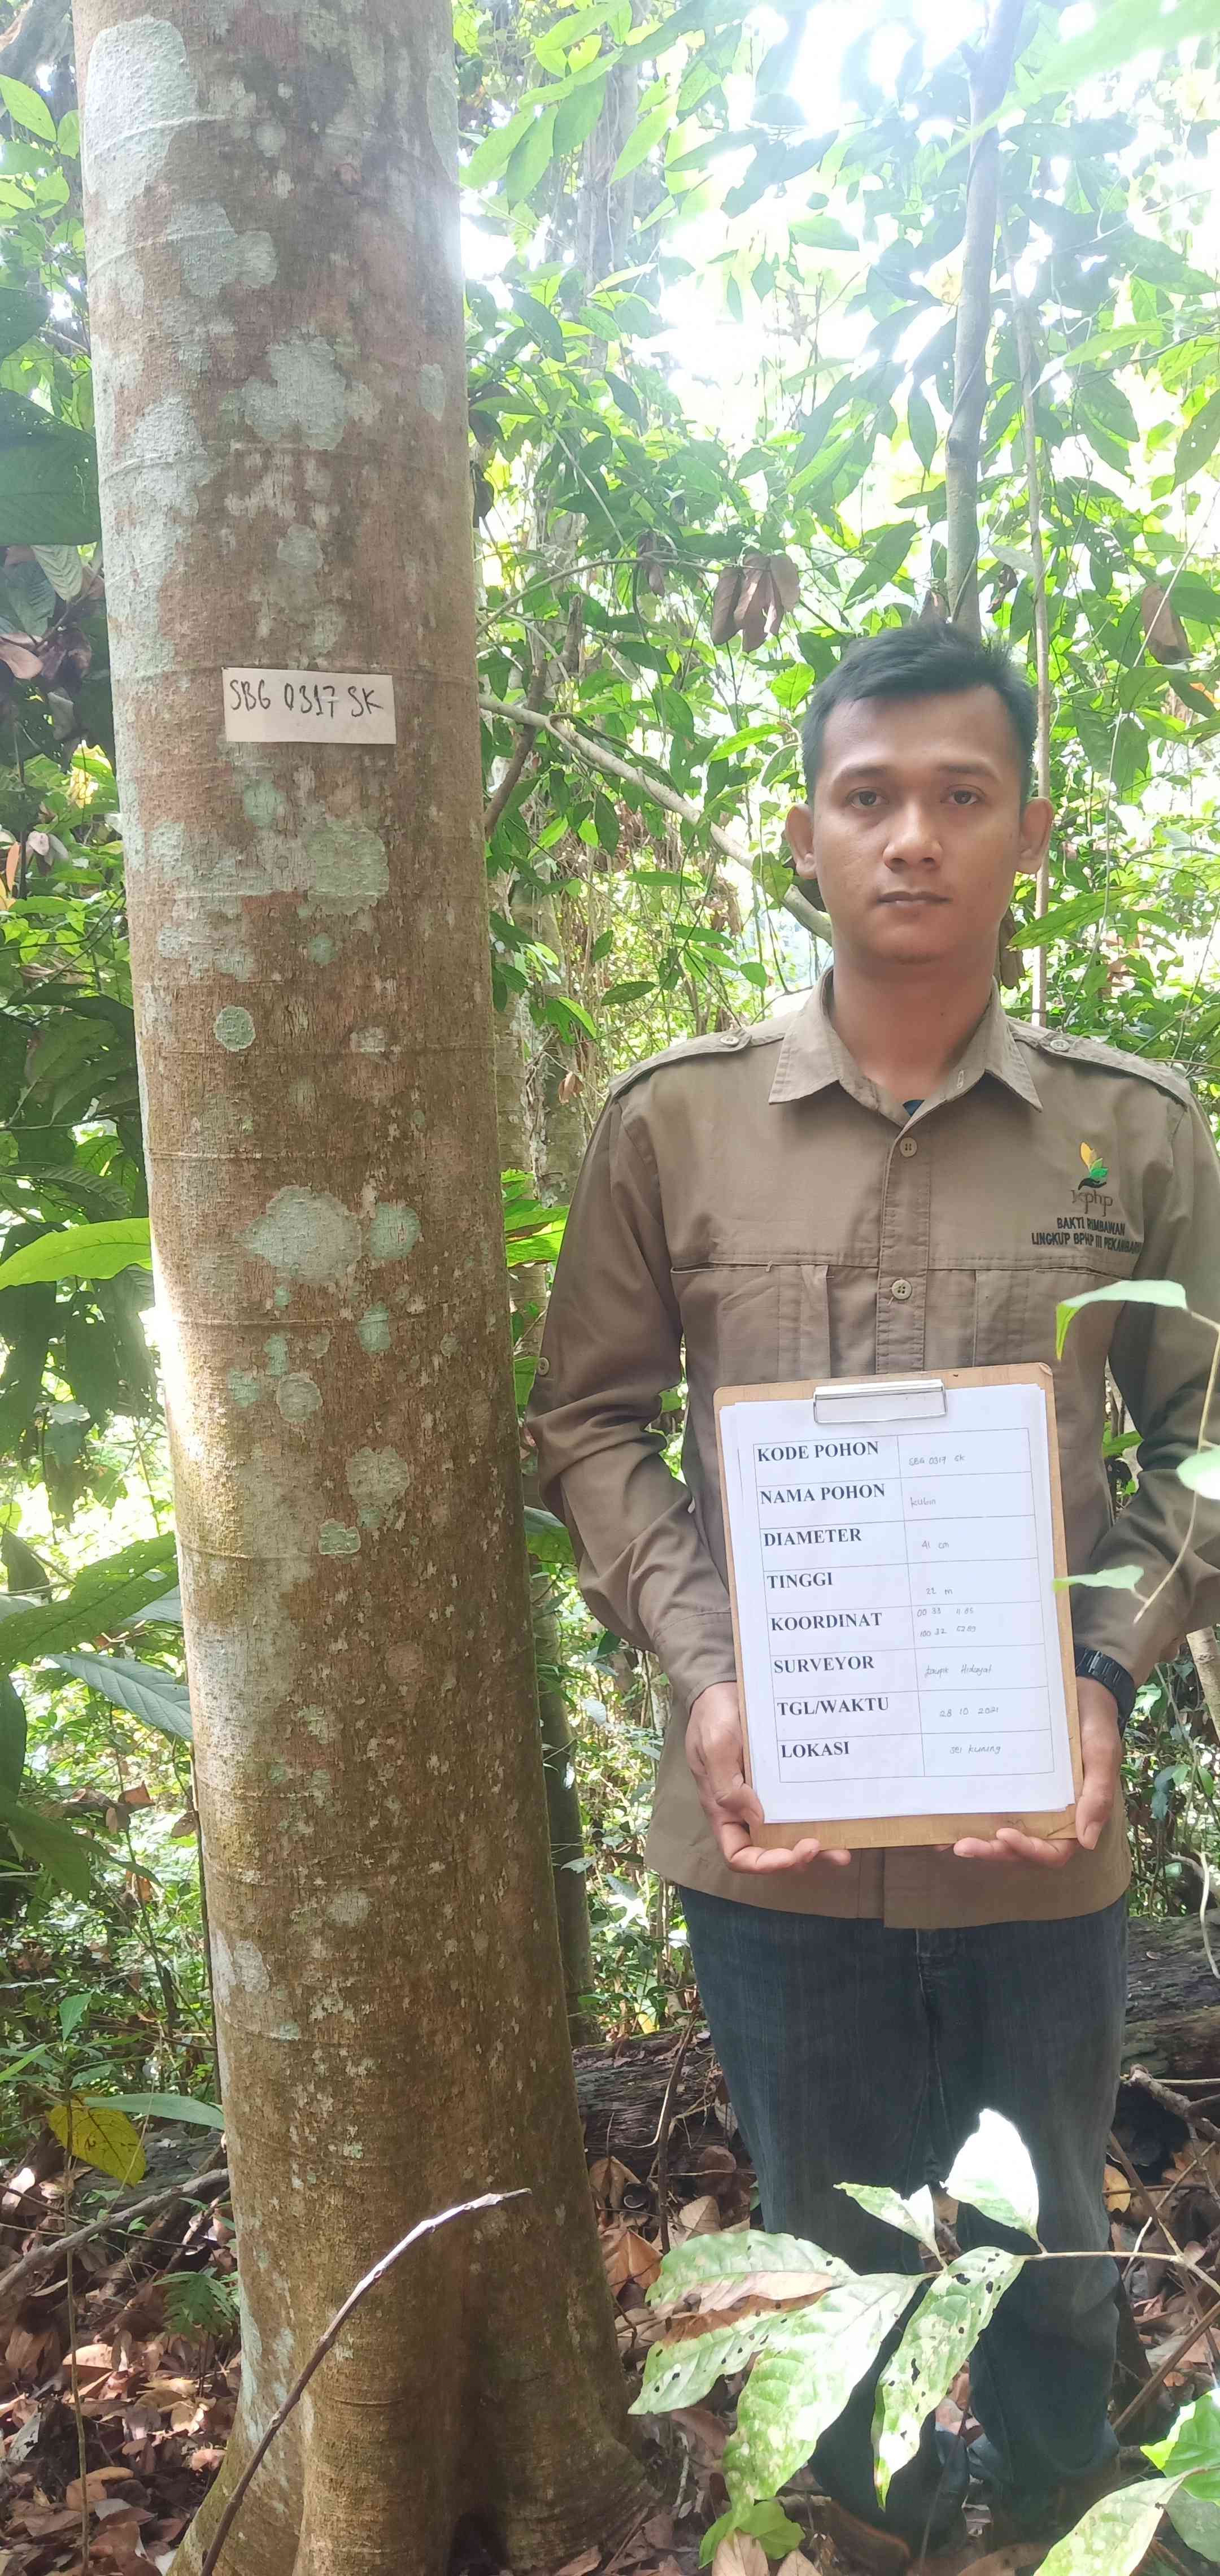 SBG 0317 SK
kphp
BAKTI RIMBAWAN
LINGKUP BPHP III PEKANBARU
KODE POHON SBG 0317 SK
NAMA POHON kubin
DIAMETER 41 cm
TINGGI 22 m
KOORDINAT 00 33
100 32
SURVEYOR Hidayat
TGL/WAKTU 28 10 2021
LOKASI sei kuning